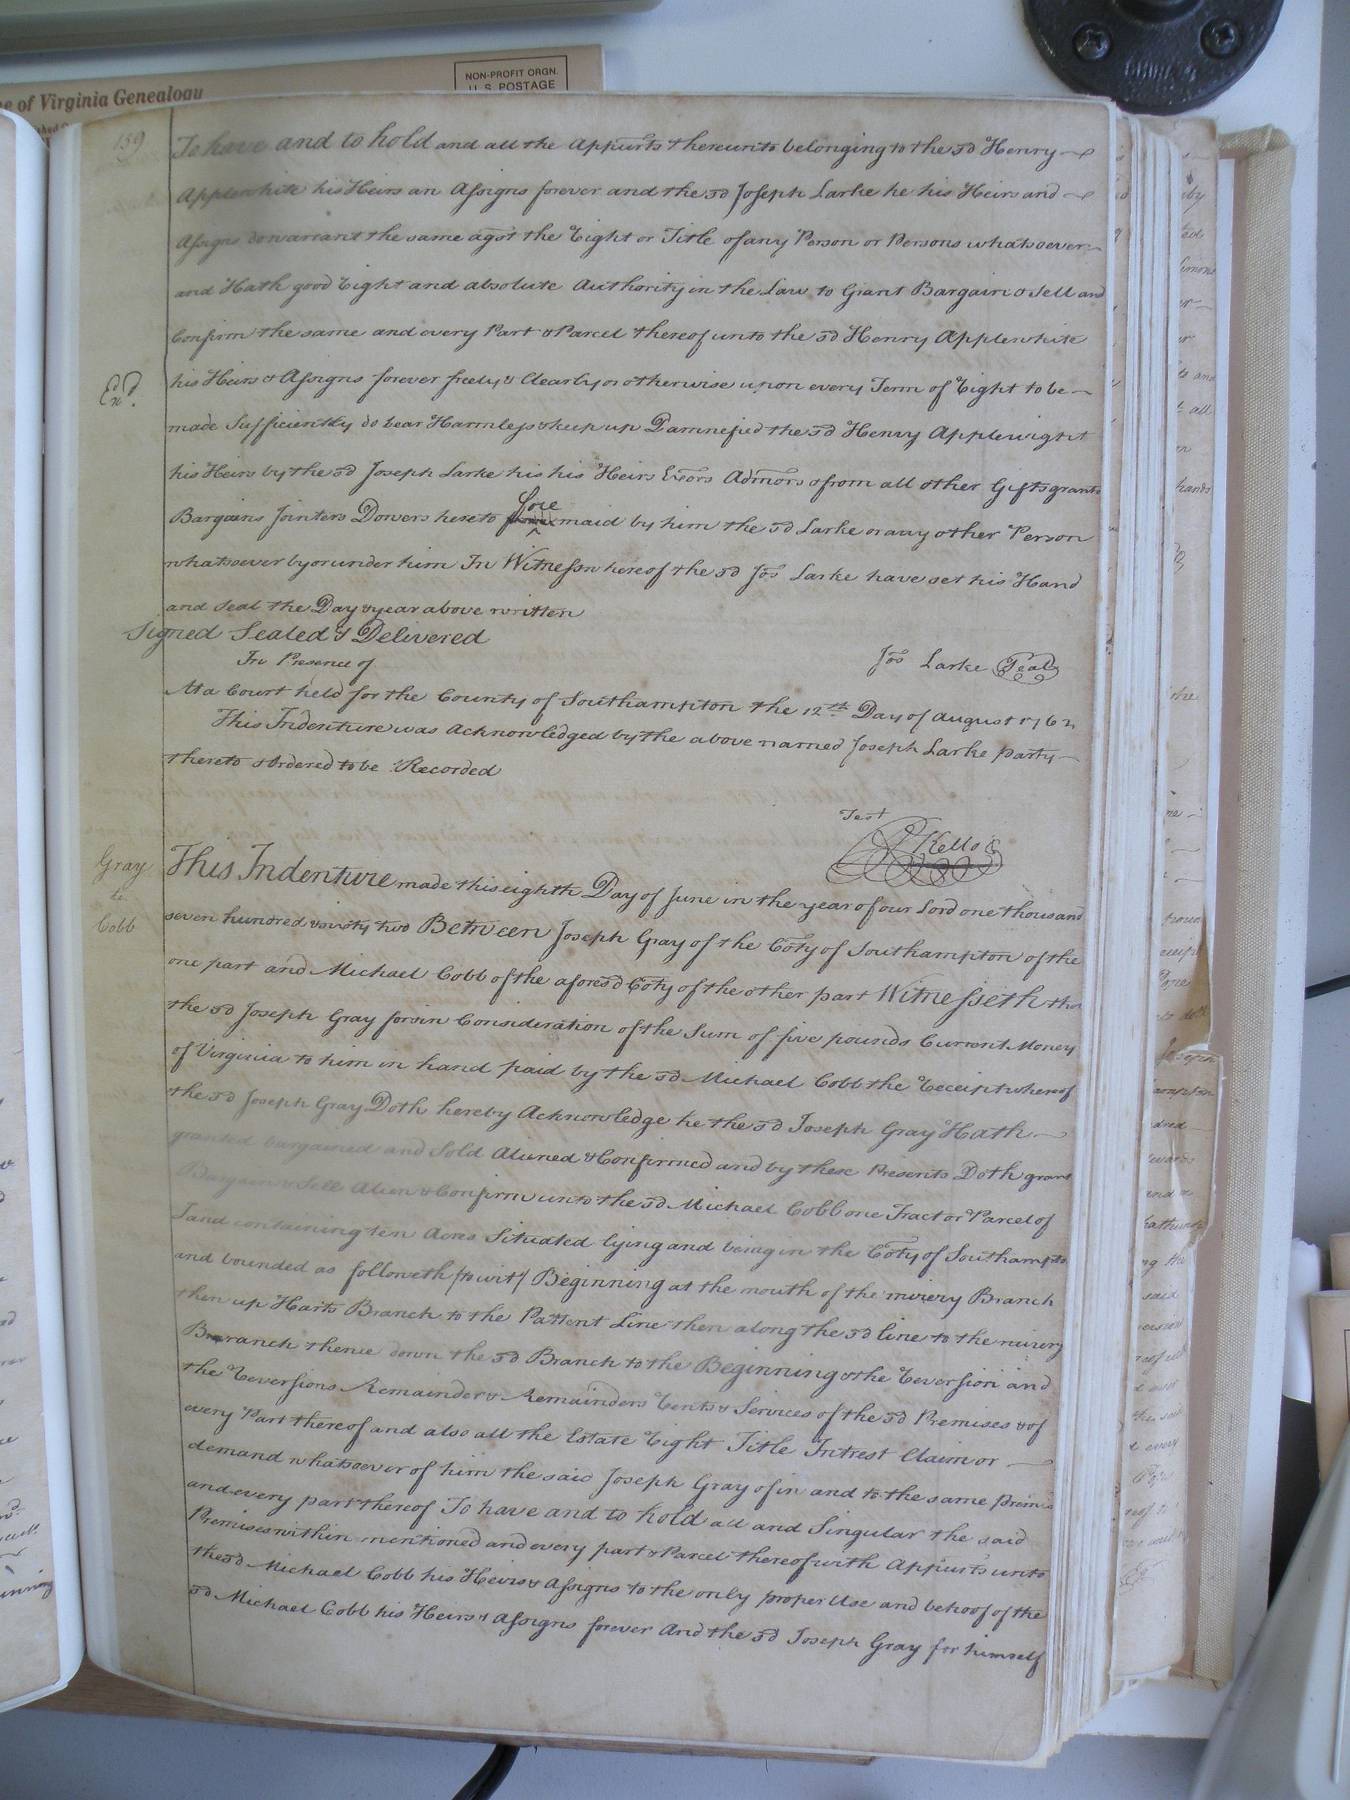 NON-PROFIT ORGN.
U.S. POSTAGE
e of Virginia Genealogy
159
To have and to hold and all the Appurts thereunto belonging to the sd Henry
Applewhite his Heirs an Assigns forever and the sd Joseph Larke he his Heirs and
Assigns do warrant the same agst the Right or Title of any Person or Persons whatsoever
and Hath good Right and absolute Authority in the Law to Grant Bargain & Sell and
Confirm the same and every Part & Parcel thereof unto the sd Henry Applewhite
his Heirs & Assigns forever freely & Clearly or otherwise upon every Term of Right to be
Exd.
made Sufficiently do bear Harmless & keep up Damnefied the sd Henry Applewight
his Heirs by the sd Joseph Larke his his Heirs Exors Admors & from all other Gifts grants
Bargains Jointers Dowers hereto fore maid by him the sd Larke or any other Person
whatsoever by or under him In Witness whereof the sd Jos Larke have set his Hand
and Seal the Day & year above written
Signed Sealed & Delivered
In Presence of
Jos Larke Seal
At a Court held for the County of Southampton the 12th Day of August 1762
This Indenture was Acknowledged by the above named Joseph Larke party
thereto & Ordered to be Recorded
Test
R Kello C
Gray
to
Cobb
This Indenture made this eighth Day of June in the year of our Lord one thousand
seven hundred & sixty two Between Joseph Gray of the Coty of Southampton of the
one part and Michael Cobb of the aforesd Coty of the other part Witnesseth tha
the sd Joseph Gray for & in Consideration of the Sum of five pounds Current Money
of Virginia to him in hand paid by the sd Michael Cobb the Receipt whereof
the sd Joseph Gray Doth hereby Acknowledge he the sd Joseph Gray Hath
granted bargained and Sold Aliened & Confirmed and by these Presents Doth grant
Bargain & Sell Alien & Confirm unto the sd Michael Cobb one Tract or Parcel of
Land containing ten Acres Situated lying and being in the Coty of Southampto
and bounded as followeth /to wit/ Beginning at the mouth of the mirery Branch
then up Harts Branch to the Pattent Line then along the sd line to the mirery
Branch thence down the sd Branch to the Beginning & the Reversion and
the Reversions Remainder & Remainders Rents & Services of the sd Premises & of
every Part thereof and also all the Estate Right Title Intrest Claim or
demand whatsoever of him the said Joseph Gray of in and to the same Premis
and every part thereof To have and to hold all and Singular the said
Premises within mentioned and every part & Parcel thereof with Appurts unto
the sd Michael Cobb his Heirs & Assigns to the only proper Use and behoof of the
sd Michael Cobb his Heirs & Assigns forever And the sd Joseph Gray for himself